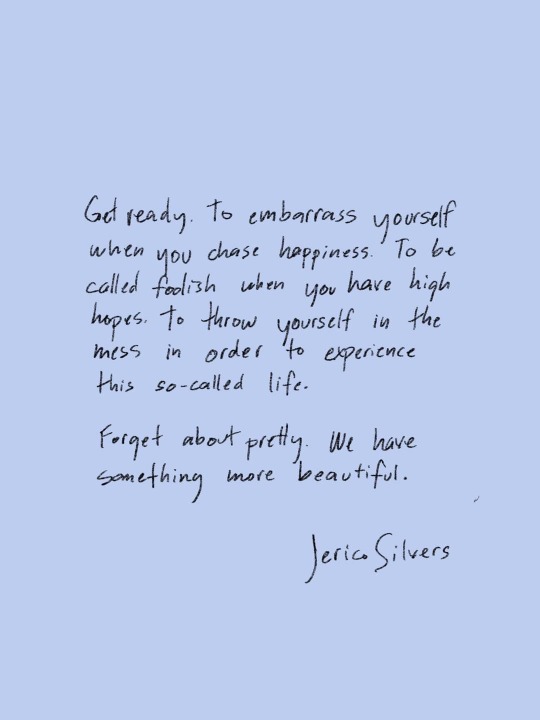 Get ready. To embarrass yourself
when you chase happiness. To be
called foolish when you have high
hopes. To throw yourself in the
mess in order to experience
this so-called life.
Forget about pretty. We have
something more beautiful.
Jerico Silvers